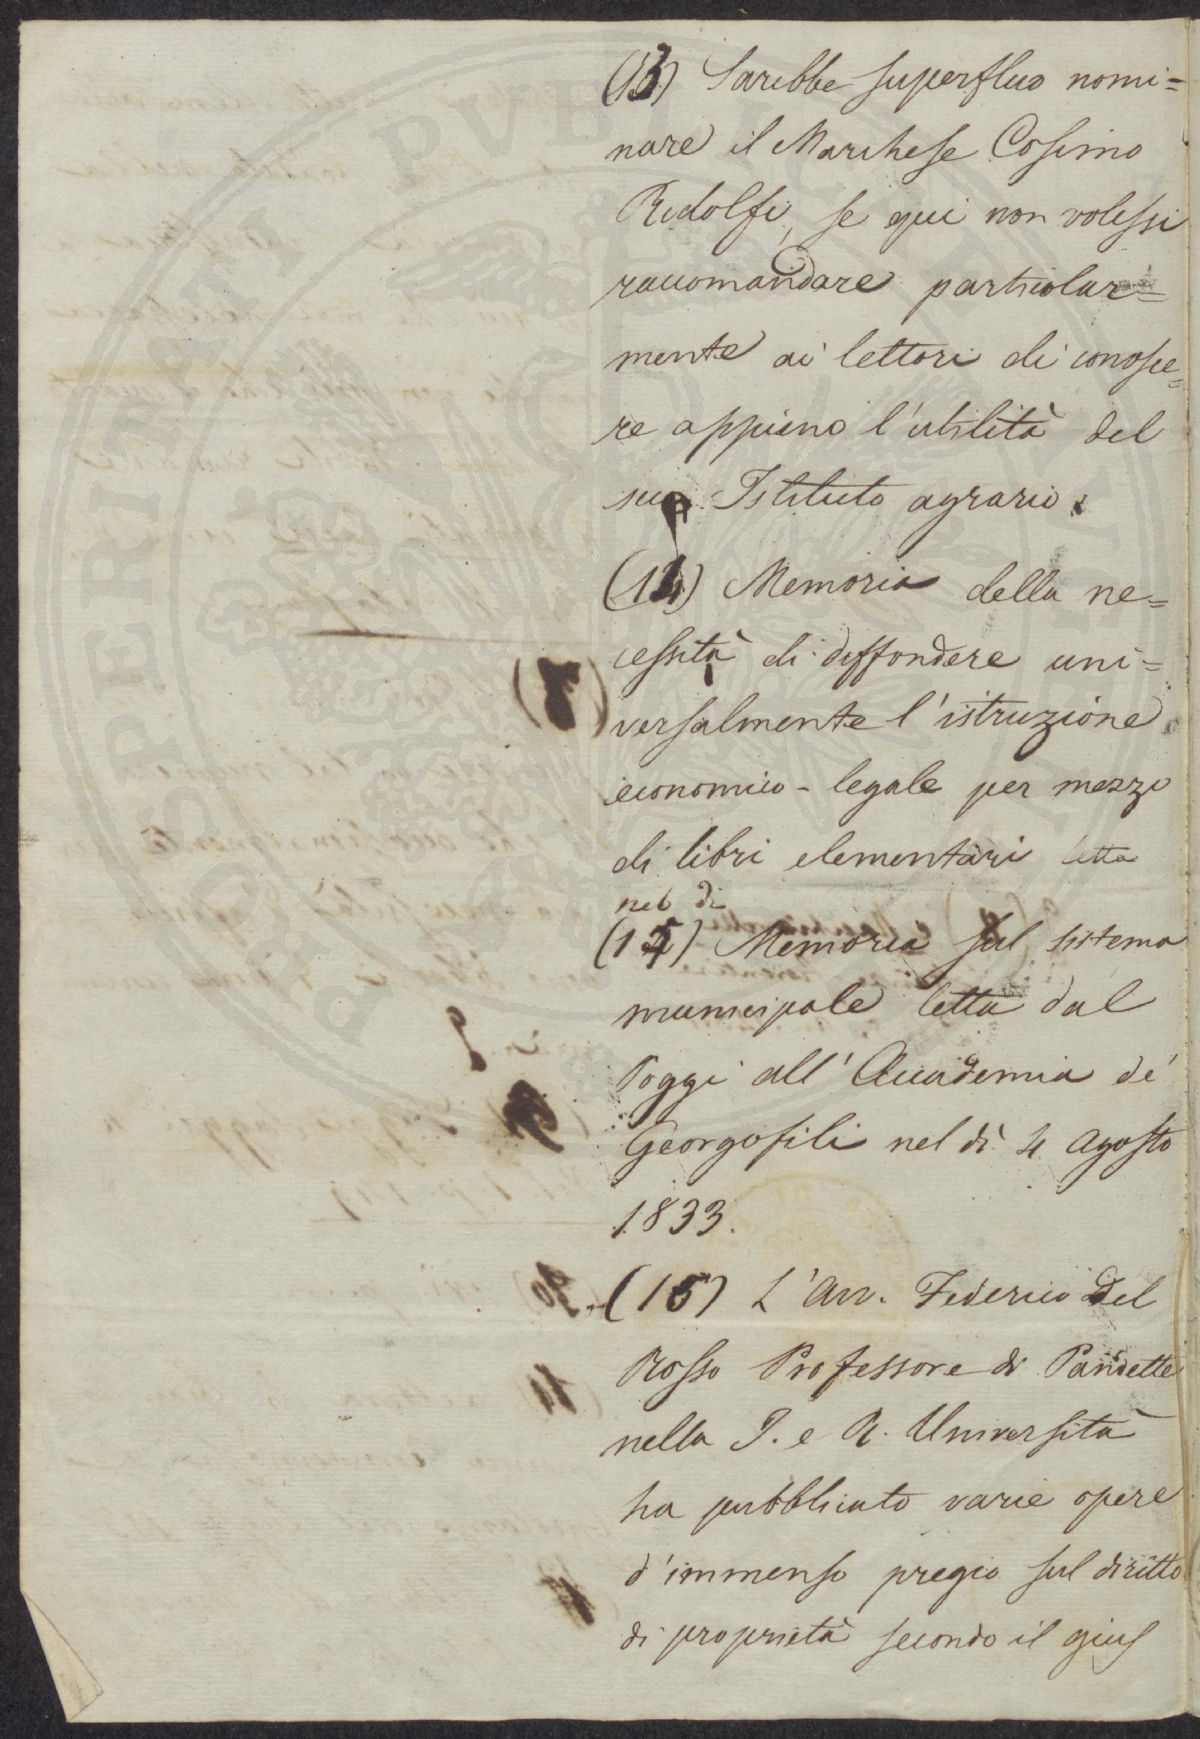 (13) Sarebbe superfluo nomi=
nare il Marchese Cosimo
Ridolfi, se qui non volessi
raccomandare particolar=
mente ai lettori di conosce=
re appieno l'utilità del
suo Istituto agrario.
(14) Memoria della ne=
cessità di diffondere uni=
versalmente l'istruzione
economico-legale per mezzo
di libri elementari letta
nel dì
(15) Memoria sul sistema
municipale letta dal
Poggi all'Accademia de'
Georgofili nel dì 4 Agosto
1833.
(16) L'Avv. Federico Del
Rosso Professore di Pandette
nella I. e R. Università
ha pubblicato varie opere
d'immenso pregio sul diritto
di proprietà secondo il gius